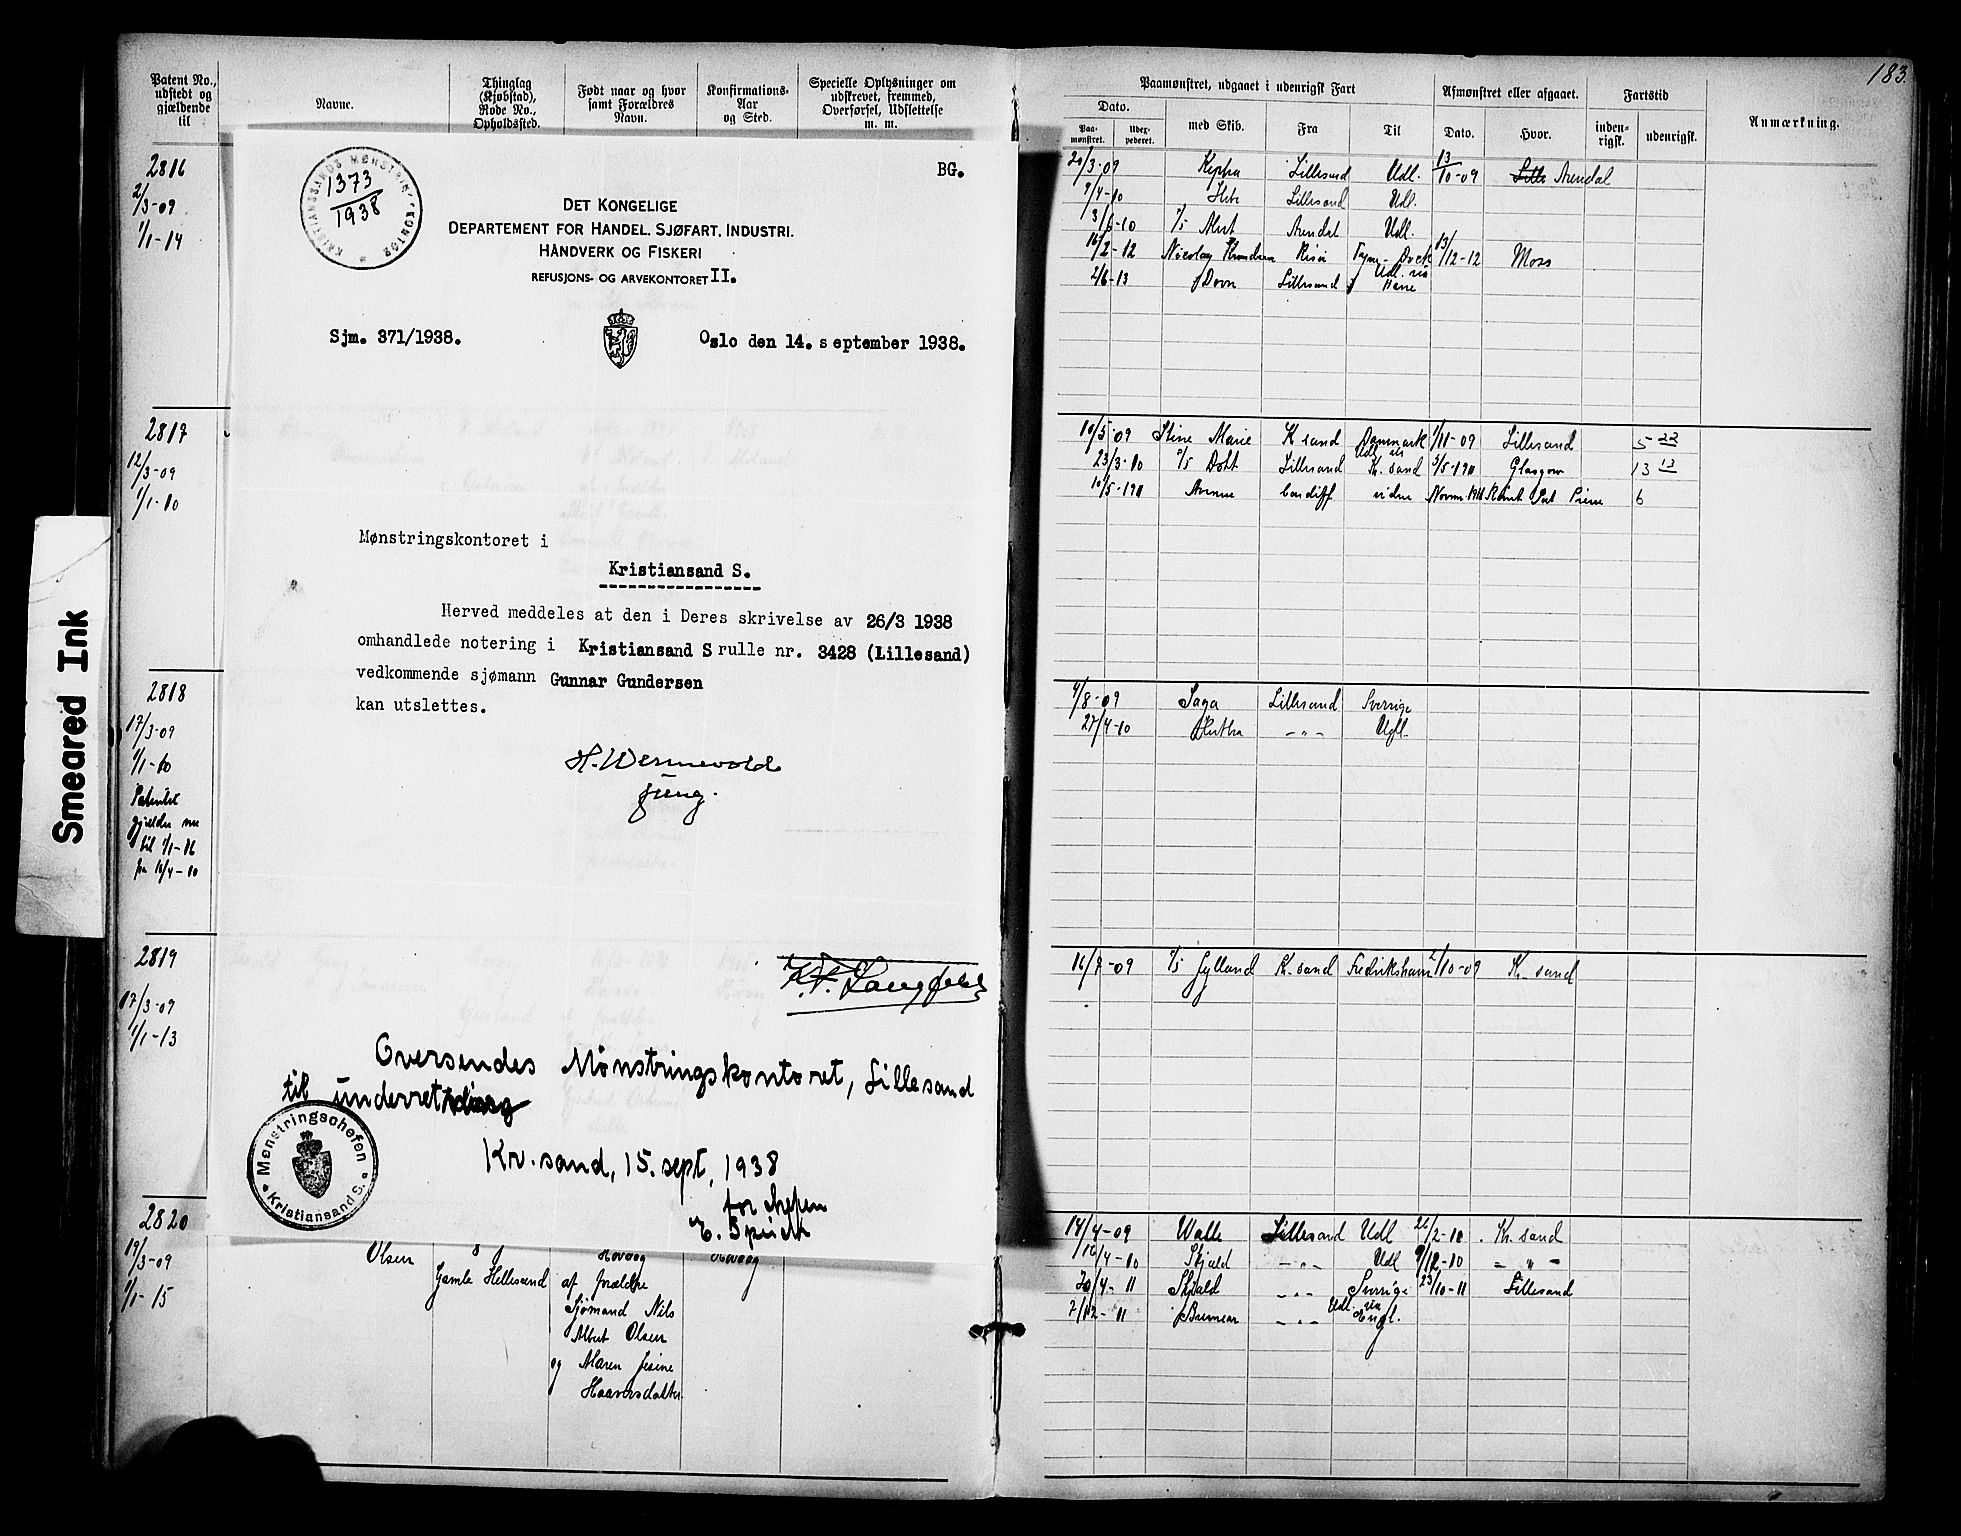 183
Patent No., udstedt og gjældende til
Navne.
Thinglag (Kjøbstad), Rode No., Opholdssted.
Født naar og hvor samt Forældres Navn.
Konfirmations- Aar og Sted.
Specielle Oplysninger om udskrevet, fremmed, Overførsel, Udslettelse m. m.
2816
2/3-09
1/1-14
2817
12/3-09
1/1-10
2818
17/3-09
1/1-10
Patentet
gjælder nu
til 1/1-16
fra 16/4-10
2819
17/3-09
1/1-13
2820
19/3-09
1/1-15
Smeared Ink
KRISTIANSSANDS MØNSTRINGSKONTOR
1373
1938
BG.
DET KONGELIGE
DEPARTEMENT FOR HANDEL, SJØFART, INDUSTRI,
HÅNDVERK OG FISKERI
REFUSJONS- OG ARVEKONTORET II.
Sjm. 371/1938.
Oslo den 14. september 1938.
Mønstringskontoret i
Kristiansand S.
Herved meddeles at den i Deres skrivelse av 26/3 1938
omhandlede notering i Kristiansand S rulle nr. 3428 (Lillesand)
vedkommende sjømann Gunnar Gundersen
kan utslettes.
Oversendes Mønstringskontoret, Lillesand
til underretning
Mønstringschefen
Kristiansand S.
Kr.sand, 15. sept. 1938
for chefen
Olsen
Gamle Hellesund
Høvaag
af forældre
Sjømand Nils
Albert Olsen
og Maren Jesine
Haavorsdatter
Høvaag
Paamønstret, udgaaet i udenrigsk Fart
Afmønstret eller afgaaet.
Fartstid
Anmærkning.
Dato.
Paa- mønstret.
Udex- pederet.
med Skib.
Fra
Til
Dato.
Hvor.
inden- rigsk.
udenrigsk.
20/3-09 Lillesand Udl. 13/10-09 Arendal
9/4-10 Hebe Lillesand Udl.
Alert Arendal Udl.
16/2-12 Nicolay Knudsen Risør Tyne-Dock 13/12-12 Moss
2/6-13 Dovre Lillesand Udl. via
10/5-09 Stine Marie K sand Danmark 1/11-09 Lillesand 5 22
23/3-10 Dott Lillesand Udl. via Kr. sand Glasgow 13 13
10/5-1911 Avenue Cardiff videre 6
4/8-09 Saga Lillesand Sverige
27/4-10 Hertha -"- Udl.
16/7-09 Jylland Kr. sand Fredrikshavn 1/10-09 Kr. sand
14/4-09 Walle Lillesand Udl 22/2-10 Kr. sand
16/4-10 Skjold -"- Udl 9/12-10 - " -
20/4-11 Skjold -"- Sverige 23/10-11 Lillesand
7/12-11 -"- Udl. via Engl.